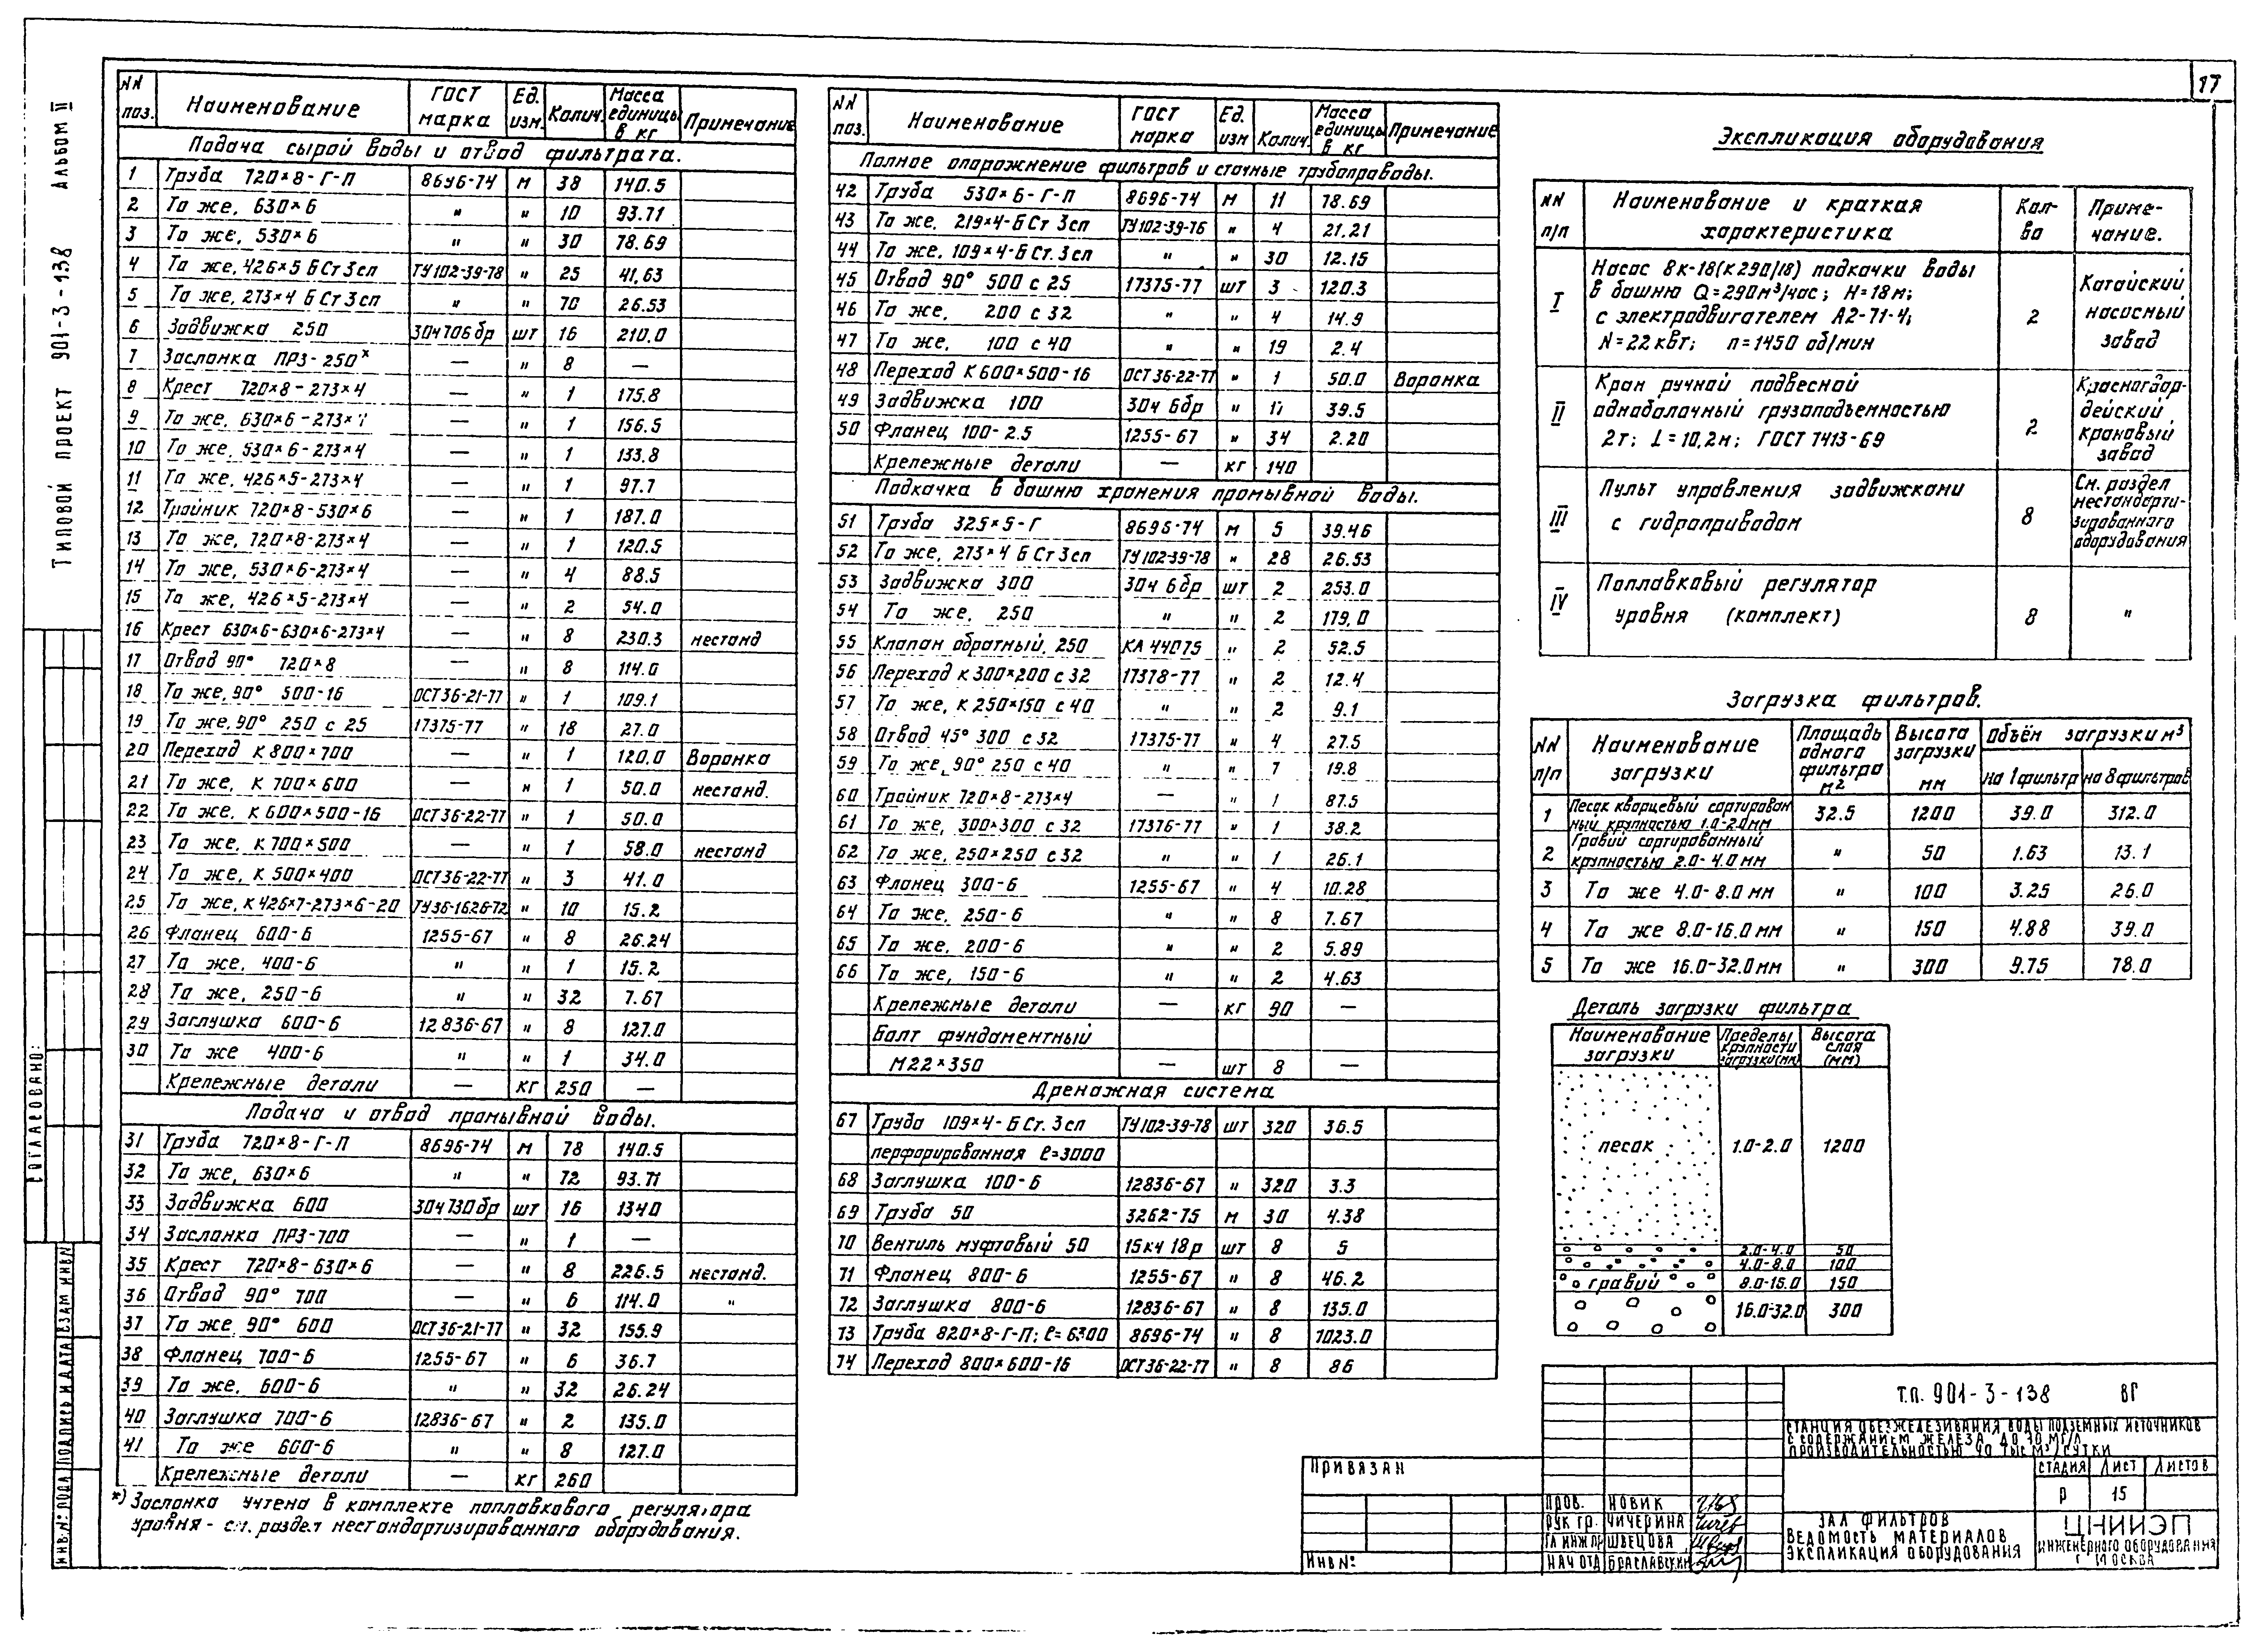 17
Типовой проект 901-3-138 Альбом II
NN поз. Наименование ГОСТ марка Ед. изм. Колич. Масса единицы в кг Примечание
Подача сырой воды и отвод фильтрата.
1 Труба 720×8-Г-П 8696-74 м 38 140.5
2 То же, 630×6 " " 10 93.71
3 То же, 530×6 " " 30 78.69
4 То же, 426×5 БСт3сп ТУ102-39-78 " 25 41,63
5 То же, 273×4 БСт3сп " " 70 26.53
6 Задвижка 250 30ч706бр шт 16 210.0
7 Заслонка ПРЗ-250ˣ — " 8 —
8 Крест 720×8-273×4 — " 1 175.8
9 То же, 630×6-273×4 — " 1 156.5
10 То же, 530×6-273×4 — " 1 133.8
11 То же, 426×5-273×4 — " 1 97.7
12 Тройник 720×8-530×6 — " 1 187.0
13 То же, 720×8-273×4 — " 1 120.5
14 То же, 530×6-273×4 — " 4 88.5
15 То же, 426×5-273×4 — " 2 54.0
16 Крест 630×6-630×6-273×4 — " 8 230.3 нестанд
17 Отвод 90° 720×8 — " 8 114.0
18 То же, 90° 500-16 ОСТ36-21-77 " 1 109.1
19 То же, 90° 250 с 25 17375-77 " 18 27.0
20 Переход К800×700 — " 1 120.0 Воронка
21 То же, К 700×600 — " 1 50.0 нестанд.
22 То же, К 600×500-16 ОСТ36-22-77 " 1 50.0
23 То же, К 700×500 — " 1 58.0 нестанд
24 То же, К 500×400 ОСТ36-22-77 " 3 41.0
25 То же, К426×7-273×6-20 ТУ36-1626-72 " 10 15.2
26 Фланец 600-6 1255-67 " 8 26.24
27 То же, 400-6 " " 1 15.2
28 То же, 250-6 " " 32 7.67
29 Заглушка 600-6 12836-67 " 8 127.0
30 То же 400-6 " " 1 34.0
Крепежные детали — кг 250 —
Подача и отвод промывной воды.
31 Труба 720×8-Г-П 8696-74 м 78 140.5
32 То же, 630×6 " " 72 93.71
33 Задвижка 600 30ч730бр шт 16 1340
34 Заслонка ПРЗ-700 — " 1 —
35 Крест 720×8-630×6 — " 8 226.5 нестанд.
36 Отвод 90° 700 — " 6 114.0 "
37 То же, 90° 600 ОСТ36-21-77 " 32 155.9
38 Фланец 700-6 1255-67 " 6 36.7
39 То же, 600-6 " " 32 26.24
40 Заглушка 700-6 12836-67 " 2 135.0
41 То же 600-6 " " 8 127.0
Крепежные детали — кг 260
*) Заслонка учтена в комплекте поплавкового регулятора
уровня - см. раздел нестандартизированного оборудования.
NN поз. Наименование ГОСТ марка Ед. изм Колич. Масса единицы в кг Примечание
Полное опорожнение фильтров и сточные трубопроводы.
42 Труба 530×6-Г-П 8696-74 м 11 78.69
43 То же, 219×4-БСт 3сп ТУ102-39-76 " 4 21.21
44 То же, 109×4-БСт. 3сп " " 30 12.15
45 Отвод 90° 500 с 25 17375-77 шт 3 120.3
46 То же, 200 с 32 " " 4 14.9
47 То же, 100 с 40 " " 19 2.4
48 Переход К600×500-16 ОСТ36-22-77 " 1 50.0 Воронка
49 Задвижка 100 30ч 6бр " 17 39.5
50 Фланец 100-2.5 1255-67 " 34 2.20
Крепежные детали — кг 140
Подкачка в башню хранения промывной воды.
51 Труба 325×5-Г 8696-74 м 5 39.46
52 То же, 273×4 БСт3сп ТУ102-39-78 " 28 26.53
53 Задвижка 300 30ч 6бр шт 2 253.0
54 То же, 250 " " 2 179.0
55 Клапан обратный, 250 КА 44075 " 2 52.5
56 Переход К300×200 с 32 17378-77 " 2 12.4
57 То же, К 250×150 с 40 " " 2 9.1
58 Отвод 45° 300 с 32 17375-77 " 4 27.5
59 То же, 90° 250 с 40 " " 7 19.8
60 Тройник 720×8-273×4 — " 1 87.5
61 То же, 300×300 с 32 17376-77 " 1 38.2
62 То же, 250×250 с 32 " " 1 26.1
63 Фланец 300-6 1255-67 " 4 10.28
64 То же, 250-6 " " 8 7.67
65 То же, 200-6 " " 2 5.89
66 То же, 150-6 " " 2 4.63
Крепежные детали — кг 90 —
Болт фундаментный
М22×350 — шт 8 —
Дренажная система
67 Труба 109×4-БСт. 3сп ТУ102-39-78 шт 320 36.5
перфорированная ℓ=3000
68 Заглушка 100-6 12836-67 " 320 3.3
69 Труба 50 3262-75 м 30 4.38
70 Вентиль муфтовый 50 15кч 18р шт 8 5
71 Фланец 800-6 1255-67 " 8 46.2
72 Заглушка 800-6 12836-67 " 8 135.0
73 Труба 820×8-Г-П; ℓ=6300 8696-74 " 8 1023.0
74 Переход 800×600-16 ОСТ36-22-77 " 8 86
Экспликация оборудования
NN п/п Наименование и краткая характеристика Кол-во Приме-чание.
I Насос 8К-18(К290/18) подкачки воды
в башню Q=290м³/час; Н=18м;
с электродвигателем А2-71-4;
N=22квт; n=1450 об/мин
2 Катайский насосный завод
II Кран ручной подвесной
однобалочный грузоподъемностью
2т; L=10,2м; ГОСТ 7413-69
2 Красногвар-дейский крановый завод
III Пульт управления задвижками
с гидроприводом
8 См. раздел нестандарти-зированного оборудования
IV Поплавковый регулятор
уровня (комплект) 8 "
Загрузка фильтров.
NN п/п Наименование загрузки Площадь одного фильтра м² Высота загрузки мм Объём загрузки м³
на 1 фильтр на 8 фильтров
1 Песок кварцевый сортирован
ный крупностью 1.0-2.0мм 32.5 1200 39.0 312.0
2 Гравий сортированный
крупностью 2.0-4.0мм " 50 1.63 13.1
3 То же 4.0-8.0 мм " 100 3.25 26.0
4 То же 8.0-16.0мм " 150 4.88 39.0
5 То же 16.0-32.0мм " 300 9.75 78.0
Деталь загрузки фильтра
Наименование загрузки Пределы крупности загрузки(мм) Высота слоя (мм)
песок 1.0-2.0 1200
2.0-4.0 50
4.0-8.0 100
гравий 8.0-16.0 150
16.0-32.0 300
Т.П. 901-3-138 ВГ
Станция обезжелезивания воды подземных источников
с содержанием железа до 30 мг/л
производительностью 40 тыс м³/сутки
Стадия Лист Листов
Р 15
Зал фильтров
Ведомость материалов
Экспликация оборудования
ЦНИИЭП
инженерного оборудования
г. Москва
Привязан
Инв №
Пров. Новик
Рук гр. Чичерина
Гл инж пр Швецова
Нач отд Браславский
Согласовано:
Инв. № подл Подпись и дата Взам инв №